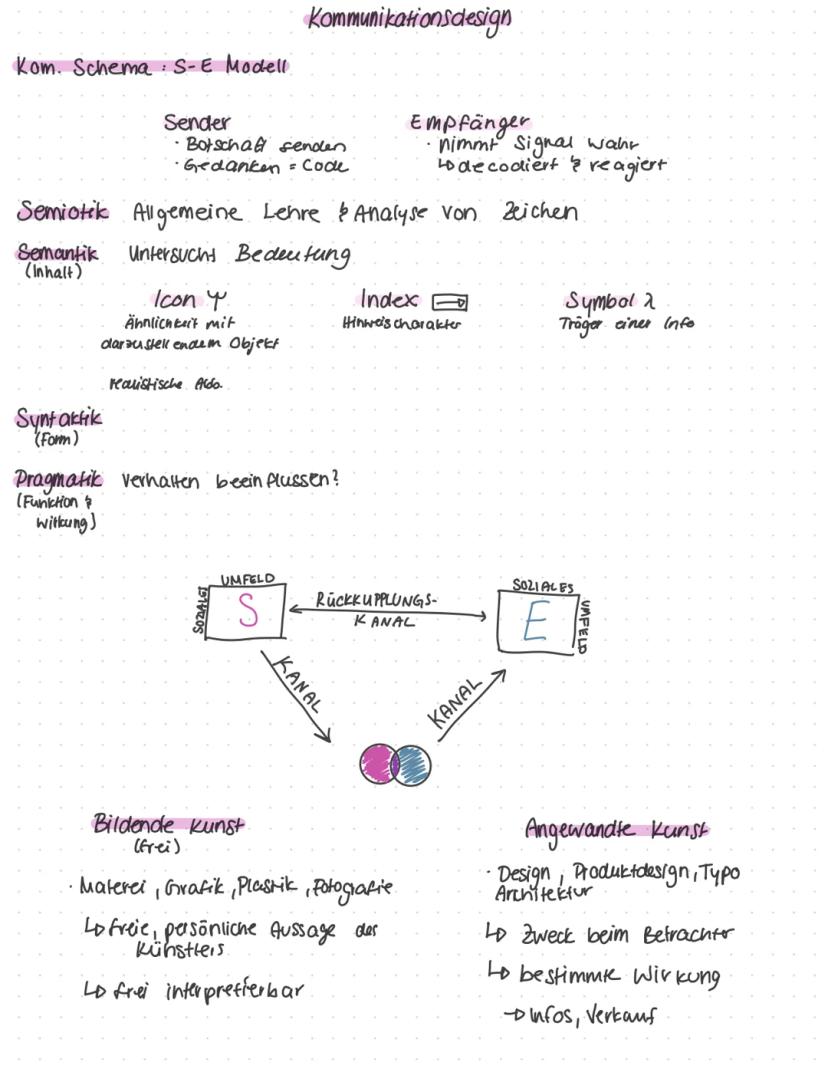 Kommunikationsdesign
Kom. Schema : S-E Modell
Sender
· Botschaft senden
· Gedanken = Code
Empfänger
· nimmt Signal wahr
↳ decodiert & reagiert
Semiotik Allgemeine Lehre & Analyse von Zeichen
Semantik Untersucht Bedeutung
(Inhalt)
Icon Ψ
Ähnlichkeit mit
darzustellendem Objekt
realistische Abb.
Index
Hinweischarakter
Symbol λ
Träger einer Info
Syntaktik
(Form)
Pragmatik Verhalten beeinflussen?
(Funktion &
Wirkung)
SOZIALES
UMFELD
S
RÜCKKUPPLUNGS-
KANAL
SOZIALES
UMFELD
E
KANAL
KANAL
Bildende Kunst
(frei)
· Malerei, Grafik, Plastik, Fotografie
↳ freie, persönliche Aussage des
Künstlers
↳ frei interpretierbar
Angewandte Kunst
· Design, Produktdesign, Typo
Architektur
↳ Zweck beim Betrachter
↳ bestimmte Wirkung
→ Infos, Verkauf